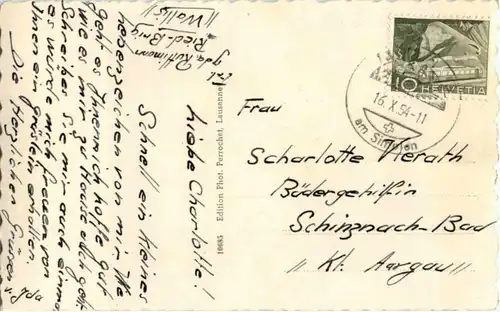 Frl.
Ida Rüttimann
Ried-Brig
"Wallis"
Liebe Charlotte!
Schnell ein kleines
von mir. Wie
geht es Ihnen ich hoffe gut
wie es mir zu Heute auch geht
Schreiben sie mir auch einmal
es würde mich freuen von
Ihnen ein zu erhalten
Die herzlichen Grüsse
v. Ida
10685 Edition Phot. Perrochet, Lausanne
10 HELVETIA
16.X.54-11
am Simplon
Frau
Scharlotte Herath
Bädergehilfin
Schinznach-Bad
"Kt. Aargau"